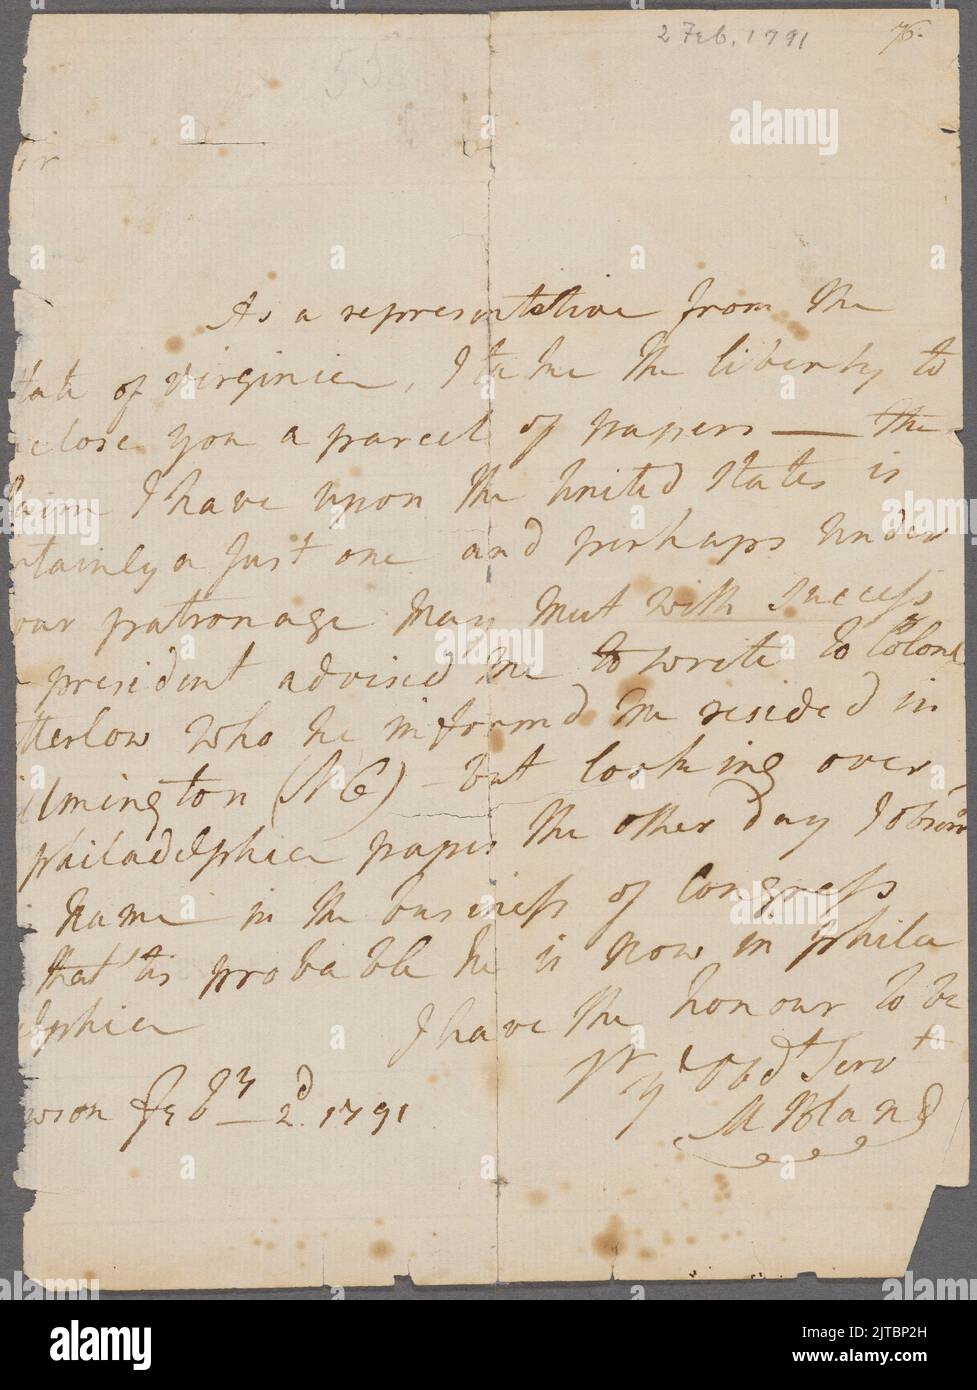 2 Feb. 1791
76.
55
ir
As a representitive from the
tate of virginia, I take the liberty to
close you a parcel of papers — the
laim I have upon the united states is
rtainly a just one and perhaps under
our patronage may meet with success
president advised me to write to Colonel
tterlow who he informd me resided in
ilmington (N C) - but looking over
philadelphia papers the other day I observ
name in the business of Congress
that 'tis probable he is now in phila
elphia I have the honour to be
yr Obdt Servt
M Bland
wson Feby 2d. 1791
alamy
alamy
Image ID: 2JTBP2H
www.alamy.com